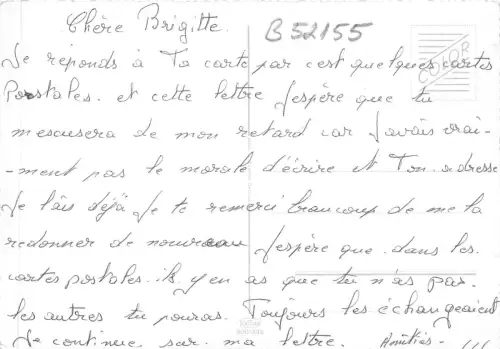 Chère Brigitte.
B52155
COLOR
Je réponds à Ta carte par c'est quelques cartes
Postales. et cette lettre J'espère que tu
m'escusera de mon retard car J'avais vrai-
-ment pas le morale d'écrire et Ton adresse
Je l'ais déjà Je te remerci beaucoup de me la
redonner de nouveau J'espère que dans les
cartes postales. ils y en as que tu n'as pas.
les autres tu pouras. Toujours les échangeaient
Je continue sur ma lettre. Amitiés.